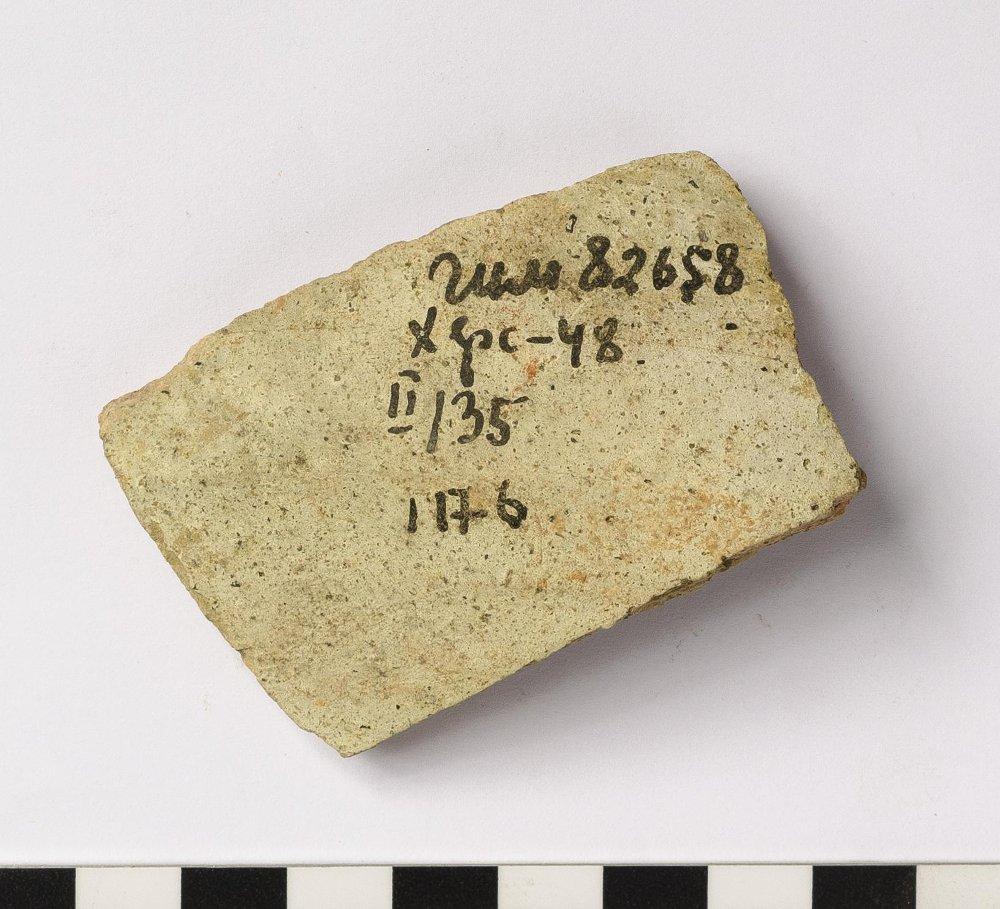 гим 82658
Хрс-48
II/35
1176